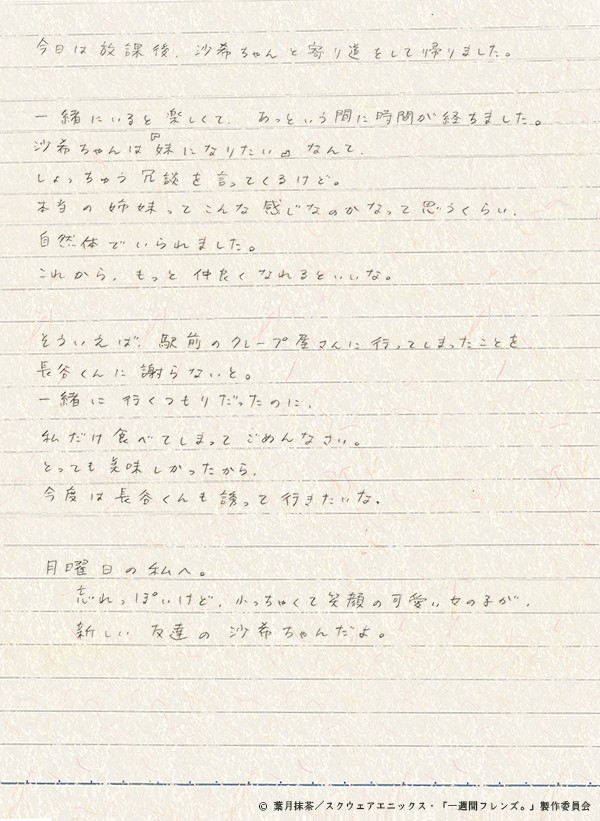 今日は放課後、沙希ちゃんと寄り道をして帰りました。
一緒にいると楽しくて、あっという間に時間が経ちました。
沙希ちゃんは『妹になりたい』なんて、
しょっちゅう冗談を言ってくるけど。
本当の姉妹ってこんな感じなのかなって思うくらい、
自然体でいられました。
これから、もっと仲良くなれるといいな。
そういえば、駅前のクレープ屋さんに行ってしまったことを
長谷くんに謝らないと。
一緒に行くつもりだったのに、
私だけ食べてしまってごめんなさい。
とっても美味しかったから、
今度は長谷くんも誘って行きたいな。
月曜日の私へ。
忘れっぽいけど、小っちゃくて笑顔の可愛い女の子が、
新しい友達の沙希ちゃんだよ。
© 葉月抹茶／スクウェアエニックス・「一週間フレンズ。」製作委員会